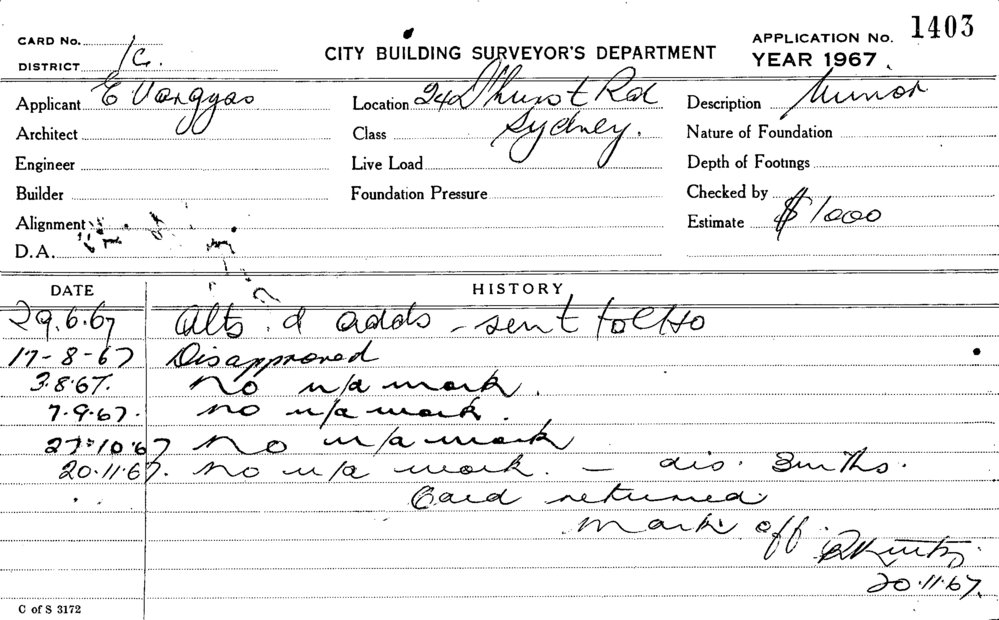 CARD No.
DISTRICT 1C.
CITY BUILDING SURVEYOR'S DEPARTMENT
APPLICATION No. 1403
YEAR 1967.
Applicant E Vargyas
Location 24 D'hurst Rd
Description Minor
Architect
Class Sydney.
Nature of Foundation
Engineer
Live Load
Depth of Footings
Builder
Foundation Pressure
Checked by
Alignment
Estimate $1000
D.A.
DATE HISTORY
29.6.67 Alts. & adds - sent to
17-8-67 Disapproved
3.8.67. No u/a work.
7.9.67. no u/a work.
27.10.67 No u/a work
20.11.67. no u/a work. - dis. 3mths.
Card returned.
Mark off.
20.11.67.
C of S 3172